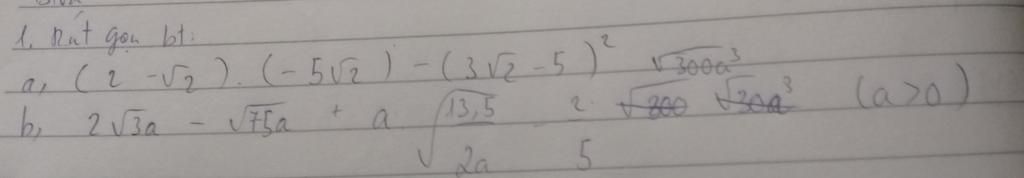 1, Rút gọn bt:
a, (2 - √2) . (-5√2) - (3√2 - 5)²
b, 2√3a - √75a + a √(13,5/2a) - 2/5 √300a³ (a>0)